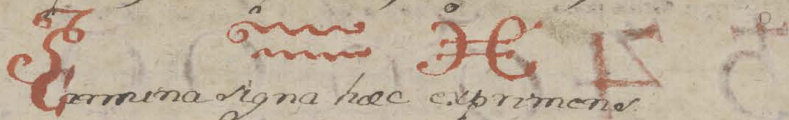 ♑ ♒ ♓
Carmina signa hæc exprimens